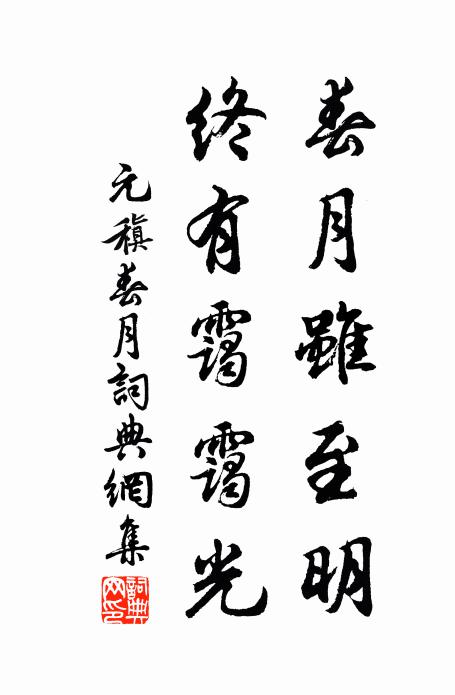 春月雖至明
終有靄靄光
元稹春月詞典網集
詞典網印